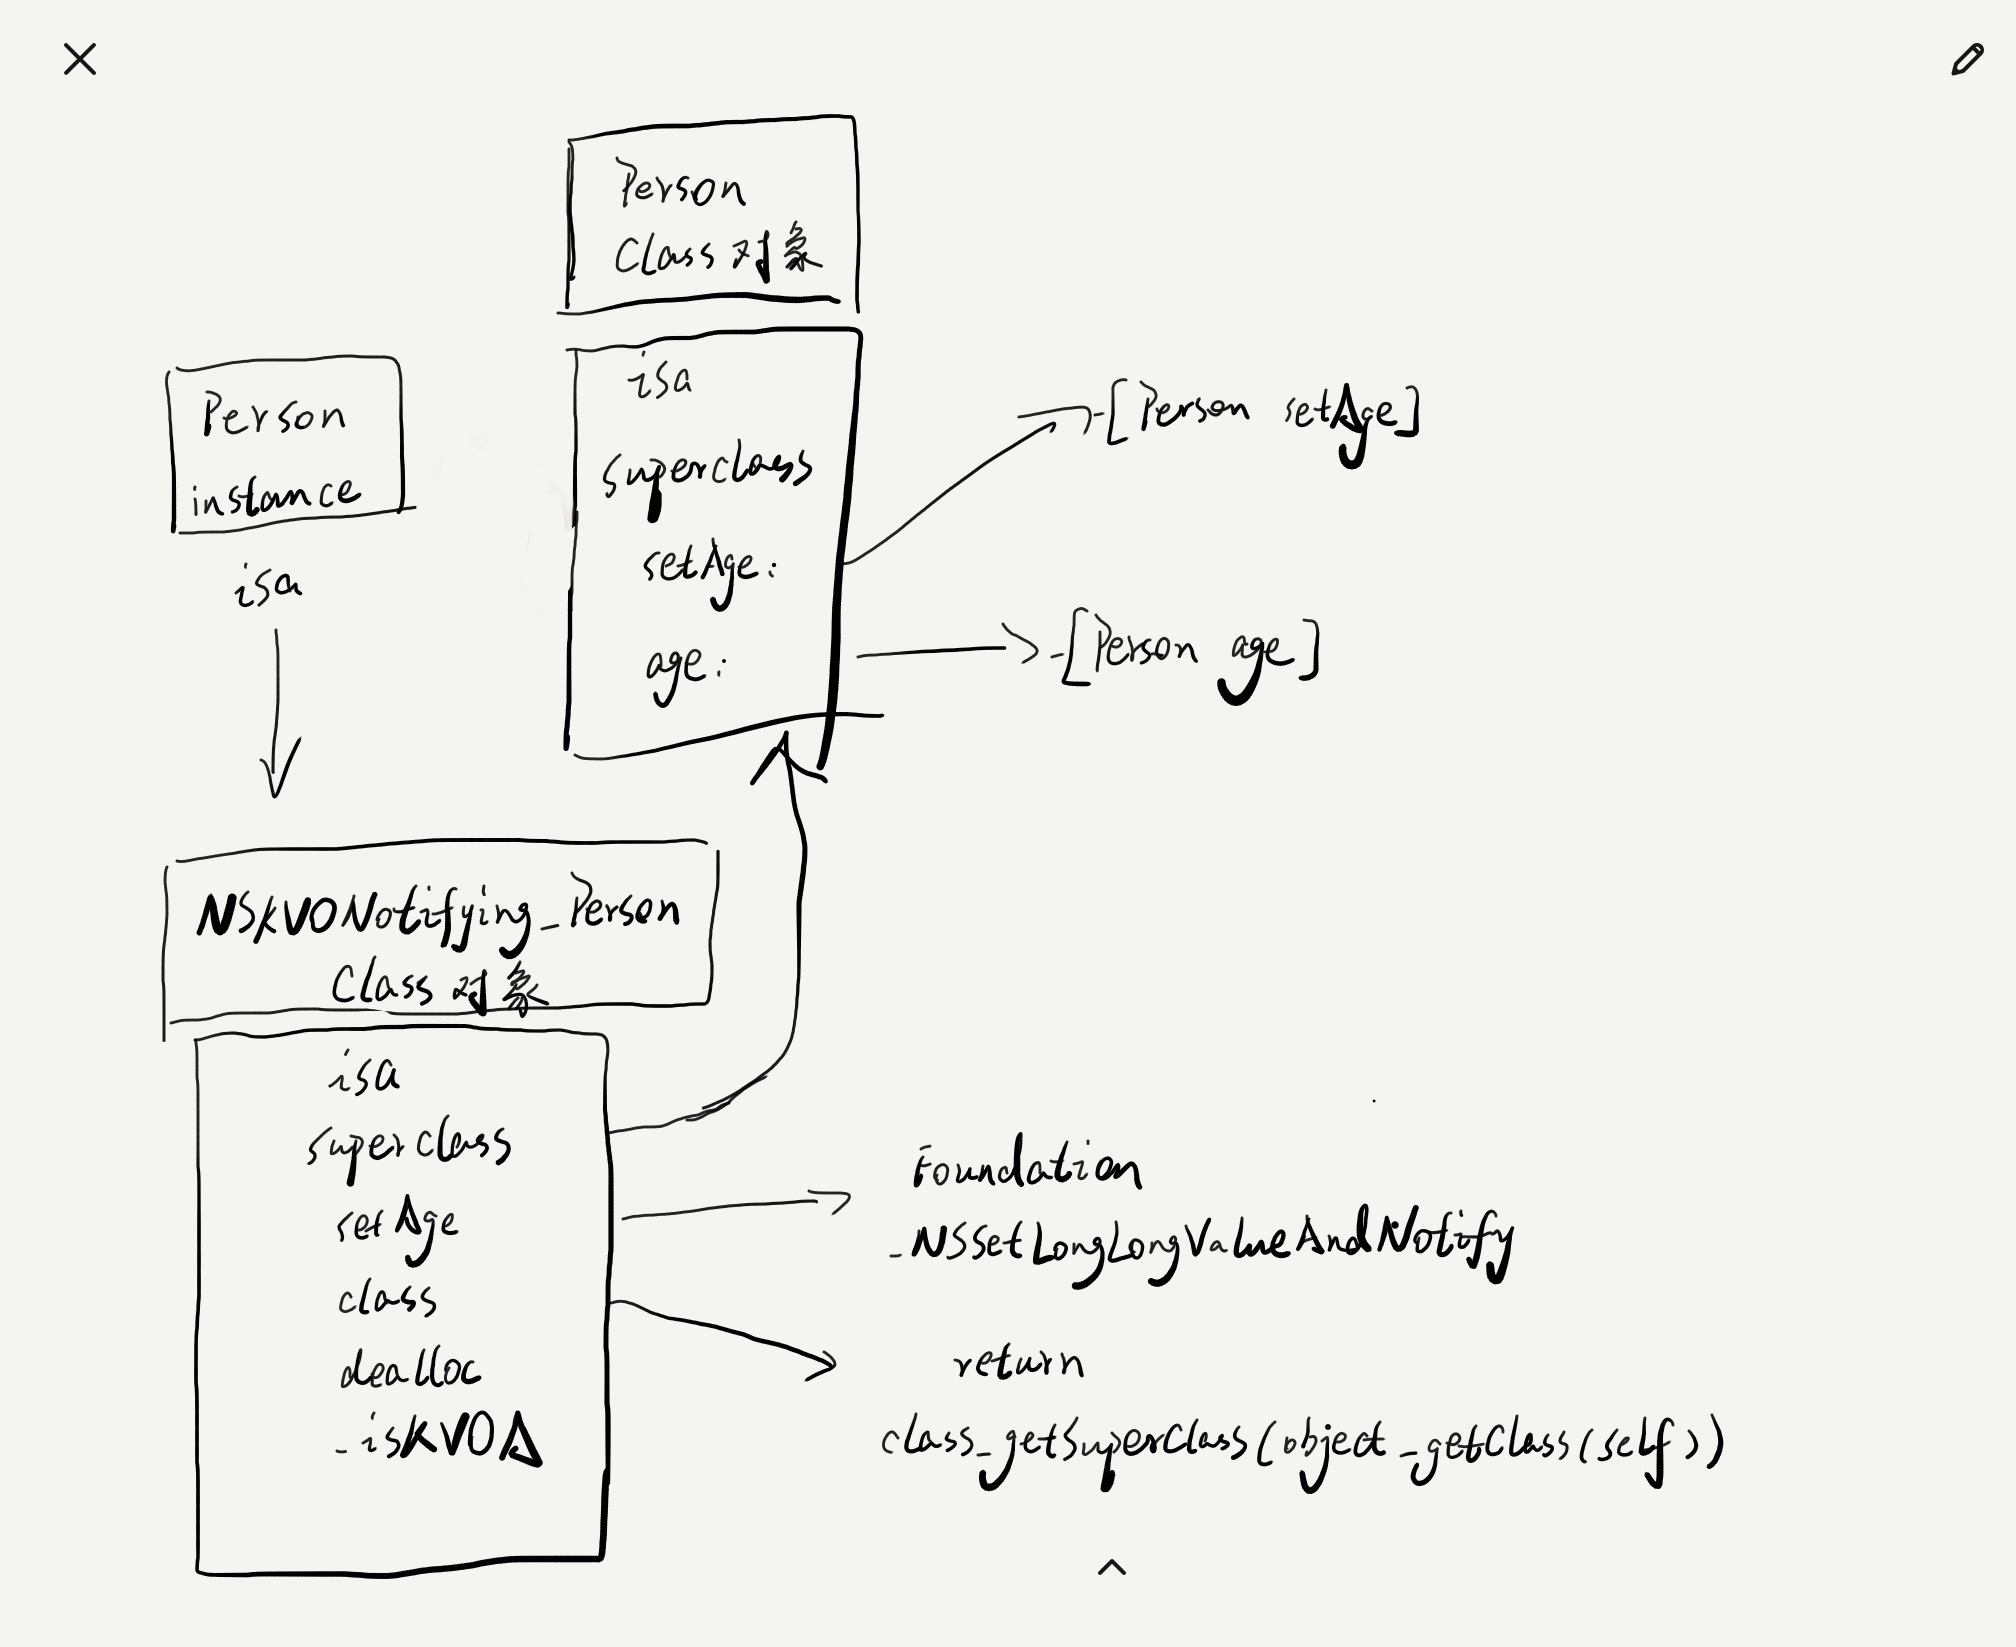 Person
Class 对象
isa
superclass
setAge:
age:
-[Person setAge]
-[Person age]
Person
instance
isa
NSKVONotifying_Person
Class 对象
isa
superclass
setAge
class
dealloc
_isKVOA
Foundation
_NSSetLongLongValueAndNotify
return
class_getSuperClass(object_getClass(self))